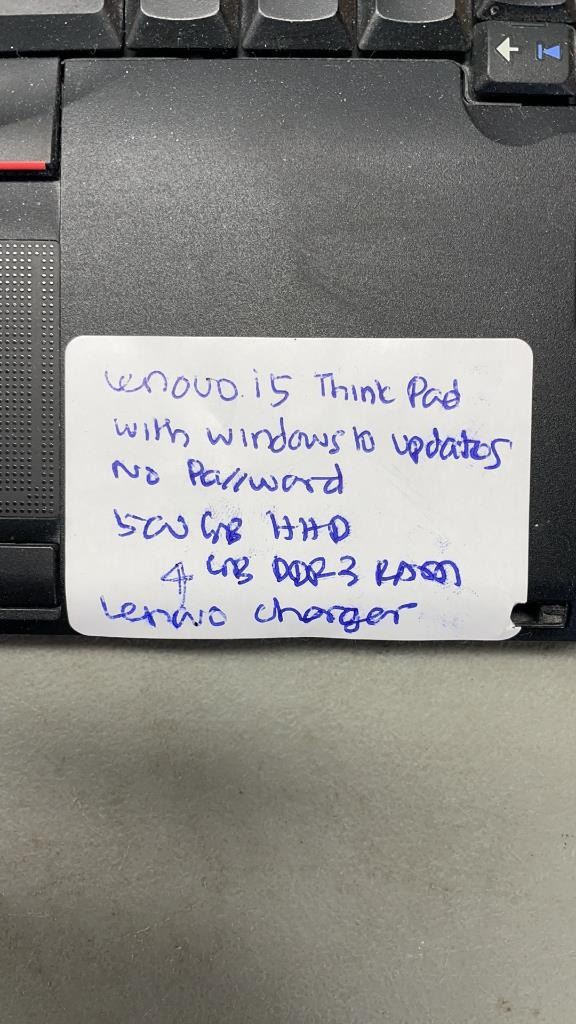 Lenovo i5 Think Pad
with windows 10 updates
No Password
500 GB HHD
4 GB DDR3 RAM
Lenovo charger